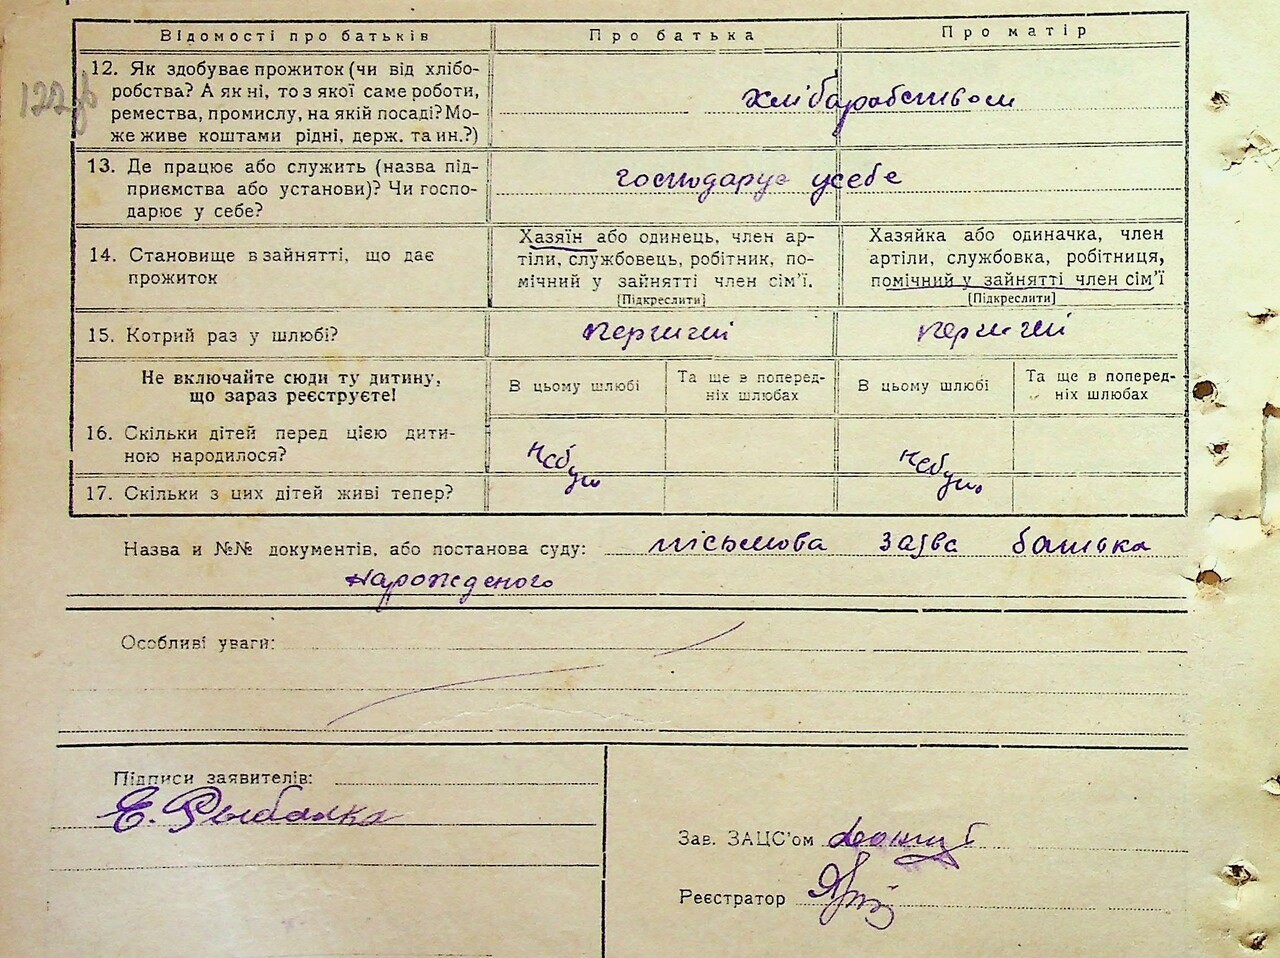 Відомості про батьків
Про батька
Про матір
122 зв
12. Як здобуває прожиток (чи від хлібо-
робства? А як ні, то з якої саме роботи,
ремества, промислу, на якій посаді? Мо-
же живе коштами рідні, держ. та ин.?)
Хлібаробством
13. Де працює або служить (назва під-
приємства або установи)? Чи госпо-
дарює у себе?
господарує усебе
14. Становище в зайнятті, що дає
прожиток
Хазяїн або одинець, член ар-
тіли, службовець, робітник, по-
мічний у зайнятті член сім'ї.
[Підкреслити]
Хазяйка або одиначка, член
артіли, службовка, робітниця,
помічний у зайнятті член сім'ї
[Підкреслити]
15. Котрий раз у шлюбі?
перший
перший
Не включайте сюди ту дитину,
що зараз реєструєте!
В цьому шлюбі
Та ще в поперед-
ніх шлюбах
В цьому шлюбі
Та ще в поперед-
ніх шлюбах
16. Скільки дітей перед цією дити-
ною народилося?
небуло
небуло
17. Скільки з цих дітей живі тепер?
Назва и №№ документів, або постанова суду: пісьмова заява батька
нарожденого
Особливі уваги:
Підписи заявителів:
Е. Рыбалка
Зав. ЗАЦС'ом
Реєстратор